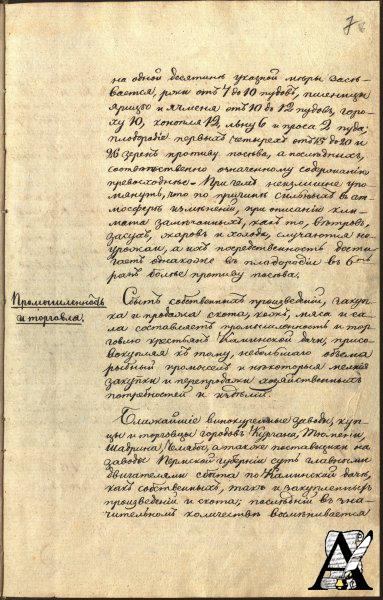 7
на одной десятинѣ указной мѣры засѣ-
вается, ржи отъ 7 до 10 пудовъ, пшеницы
ярицы и ячменя отъ 10 до 12 пудовъ, горо-
ху 10, конопля 12, льну 6 и проса 2 пуда;
плодородіе первыхъ четырехъ отъ 15 до 20 и
26 зеренъ противу посѣва, а послѣднихъ,
соотвѣтственно означенному содержанію
превосходные. При чемъ неизлишне упо-
мянуть, что по причинѣ сильныхъ въ ат-
мосферѣ измѣненій, при описаніи кли-
мата замѣченныхъ, какъ то, вѣтровъ,
засухъ, жаровъ и холода, случаются не-
урожаи, а ихъ посредственность дости-
гаетъ однакоже въ плодородіи въ 6ть
разъ болѣе противу посѣва.
Промышленность
и торговля.
Сбытъ собственныхъ произведеній, закуп-
ка и продажа скота, кожъ, мяса и са-
ла составляетъ промышленность и тор-
говлю крестьянъ Каминской дачи, присо-
вокупляя къ тому, небольшаго объема
рыбный промыселъ и нѣкоторыя мелкія
закупки и перепродажи хозяйственныхъ
потребностей и издѣлій.
Ближайшіе винокуренные заводы, куп-
цы и торговцы городовъ Кургана, Тюмени,
Шадрина, слабод, а также поставщики на
заводы Пермской губерніи суть главными
двигателями сбыта по Каминской дачѣ,
какъ собственныхъ, такъ и закупленныхъ
произведеній и скота; послѣдній въ зна-
чительномъ количествѣ вымѣнивается
А